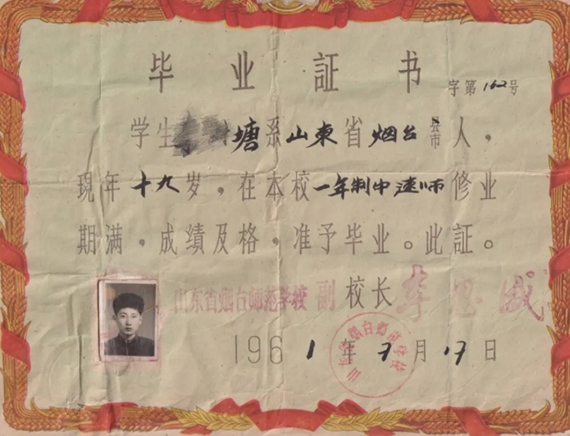 毕业証书
字第162号
学生李 塘系山東省烟台县市人，
現年十九岁，在本校一年制中速师修业
期滿，成績及格，准予毕业。此証。
山东省烟台师范学校 副校长 李
1961年7月17日